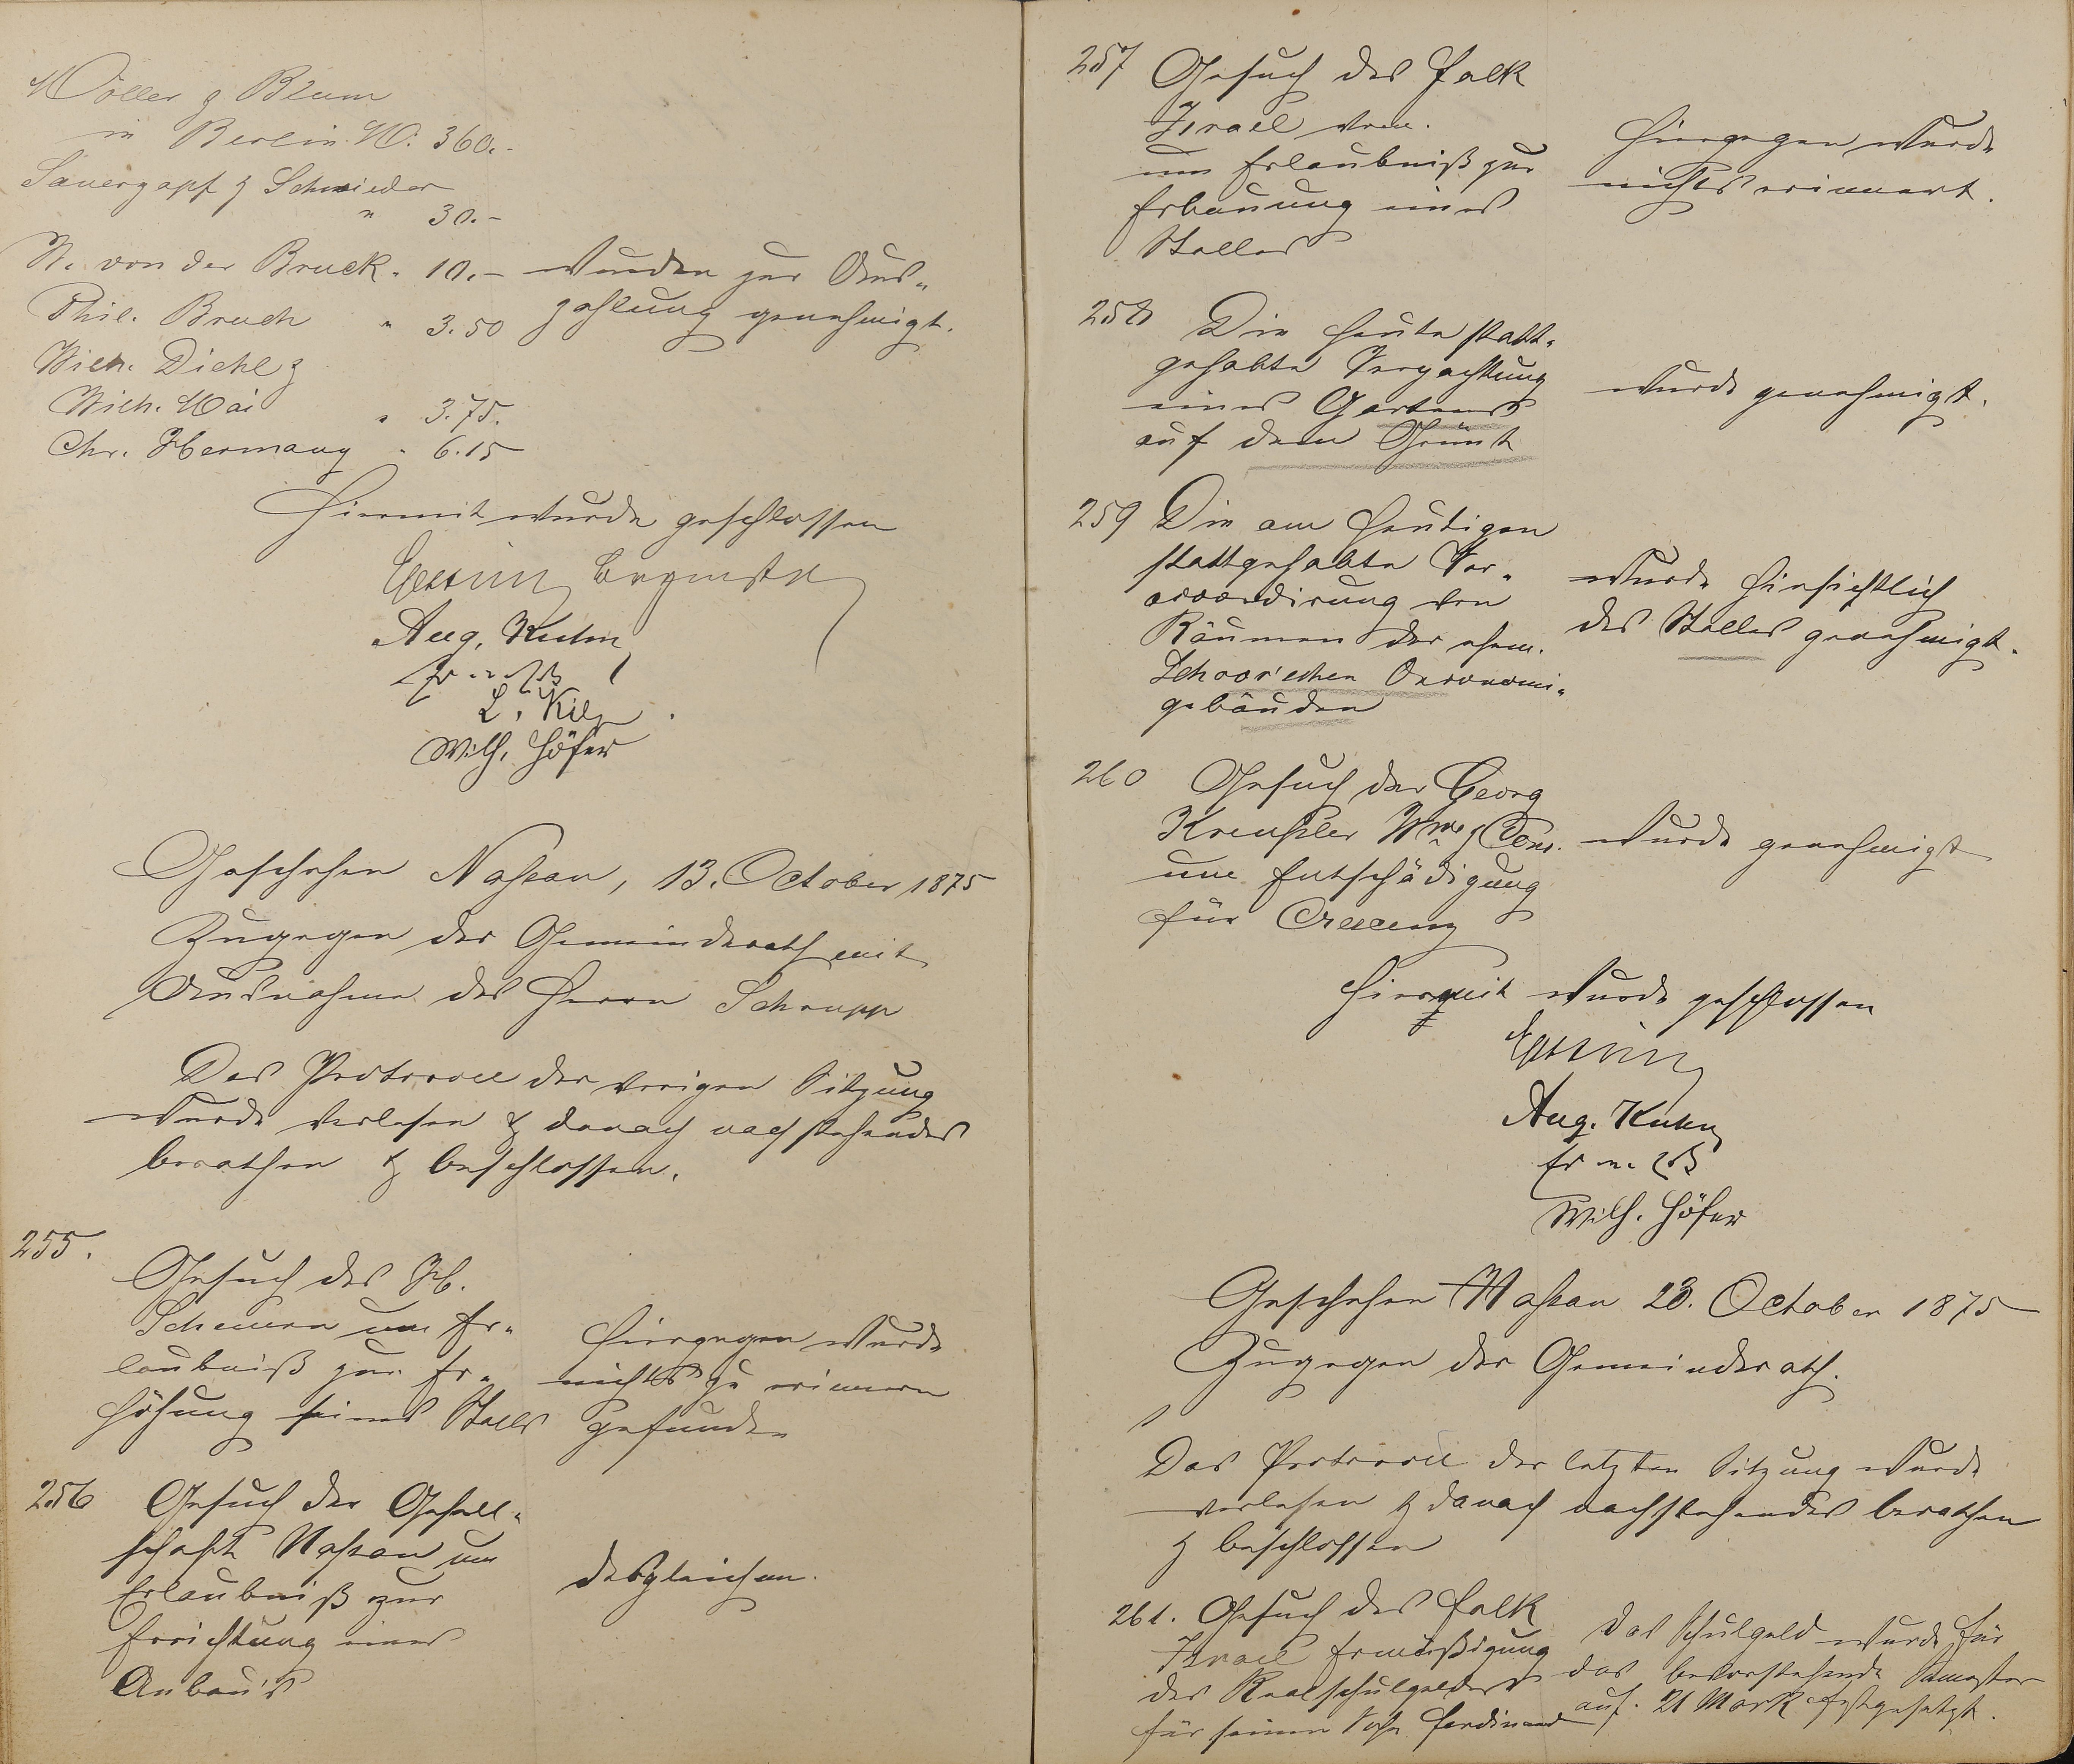 Möller & Blum
in Berlin M. 360.-
Sauerzapf & Schmieder
" 30.-
W. von der Bruck " 10.-
Phil. Bruch " 3.50
Wilh. Diehl &
Wilh. Mai " 3.75.
Chr. Hermany " 6.15
wurden zur Aus-
zahlung genehmigt.
Hiermit wurde geschlossen
Aug. Kuhn
Wilh. Höfer
Geschehen Nassau, 13. October 1875
Zugegen der Gemeinderath mit
Ausnahme des Herrn Schrupp
Das Protocoll der vorigen Sitzung
wurde verlesen & danach nachstehendes
berathen & beschlossen.
255.
Gesuch des
Scheuern um Er-
laubniß zur Er-
höhung seines Stalls
Hiergegen wurde
nichts zu erinnern
gefunden
256 Gesuch der Gesell-
schaft Nassau um
Erlaubniß zur
Errichtung eines
Anbau's
desgleichen.
257 Gesuch des Falk
Israel von.
um Erlaubniß zur
Erbauung eines
Stalles
Hiergegen wurde
nichts erinnert.
258 Die heute statt-
gehabte Verpachtung
eines Gartens
auf dem
wurde genehmigt.
259 Die am heutigen
stattgehabte Ver-
accordirung von
Räumen der ehem.
Schoor'schen Oeconomie-
gebäuden
wurde hinsichtlich
des Stalles genehmigt.
260 Gesuch der Georg
Kreußler Wwe & Cons.
um Entschädigung
für Crescenz
wurde genehmigt
Hiermit wurde geschlossen
Aug. Kuhn
Wilh. Höfer
Geschehen Nassau 23. October 1875
Zugegen der Gemeinderath.
Das Protocoll der letzten Sitzung wurde
verlesen & danach nachstehendes berathen
& beschlossen
261. Gesuch des Falk
Israel Ermäßigung
des Realschulgeldes
für seinen Sohn Ferdinand
Das Schulgeld wurde für
das bevorstehende Semester
auf 21 Mark festgesetzt.